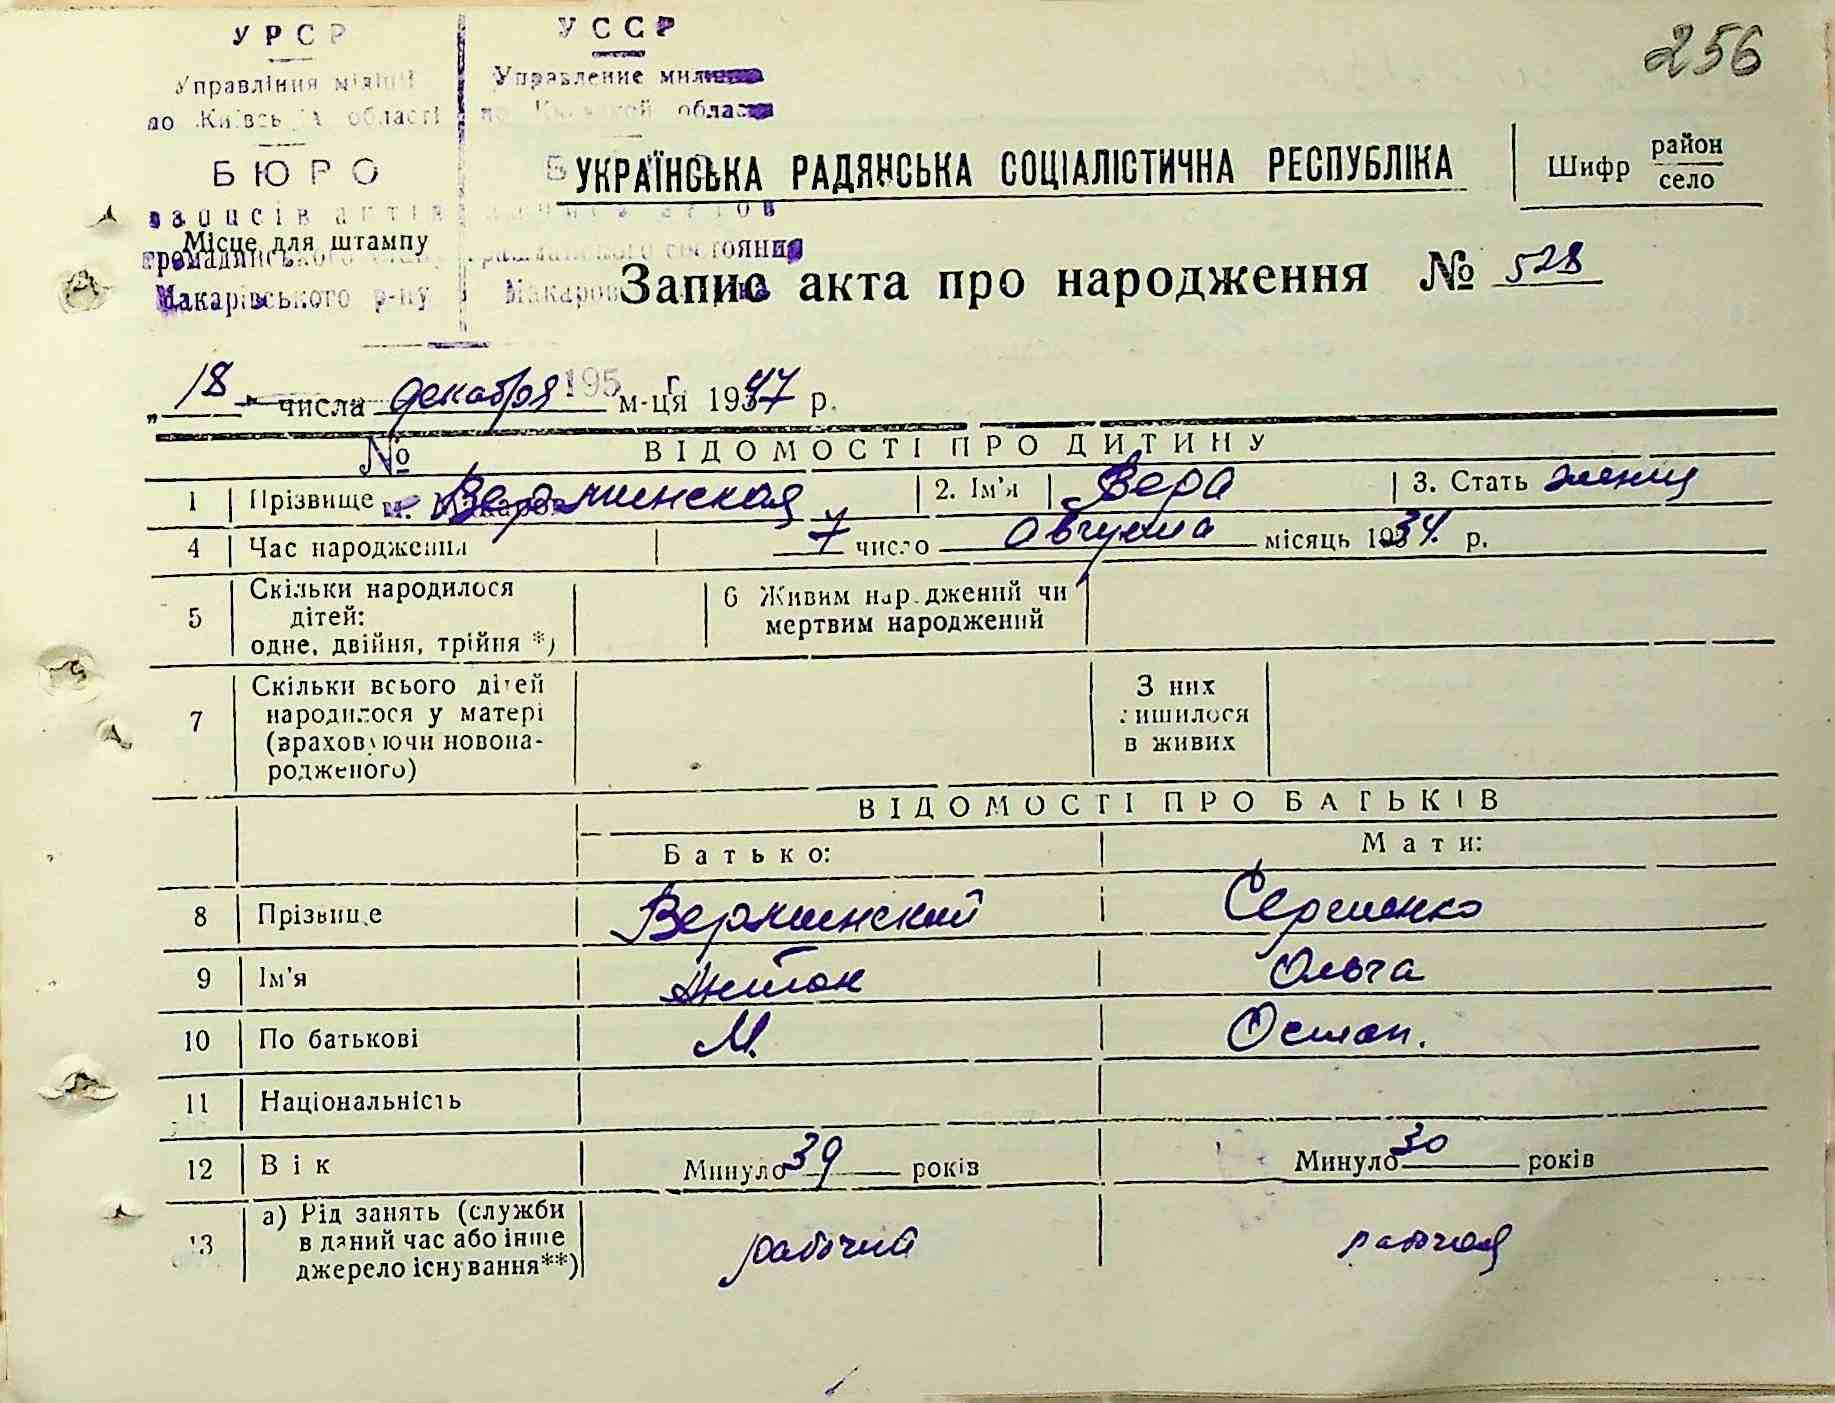 256
УРСР
Управління міліції
по Київській області
БЮРО
записів актів
громадянського стану
Макарівського р-ну
УССР
Управление милиции
по Киевской области
записи актов
гражданского состояния
Макаров
195 г.
№
м. Макаров
УКРАЇНСЬКА РАДЯНСЬКА СОЦІАЛІСТИЧНА РЕСПУБЛІКА
Шифр район
село
Місце для штампу
Запис акта про народження № 528
„18 числа декабря м-ця 1947 р.
ВІДОМОСТІ ПРО ДИТИНУ
1 Прізвище Вержминская 2. Ім'я Вера 3. Стать женщ
4 Час народження 7 число августа місяць 1934. р.
5 Скільки народилося
дітей:
одне, двійня, трійня *)
6 Живим народжений чи
мертвим народжений
7 Скільки всього дітей
народилося у матері
(враховуючи новона-
родженого)
З них
лишилося
в живих
ВІДОМОСТІ ПРО БАТЬКІВ
Батько: Мати:
8 Прізвище Вержминский Сергиенко
9 Ім'я Антон Ольга
10 По батькові М. Остап.
11 Національність
12 Вік Минуло 39 років Минуло 30 років
13 а) Рід занять (служби
в даний час або інше
джерело існування**)
рабочий рабочая